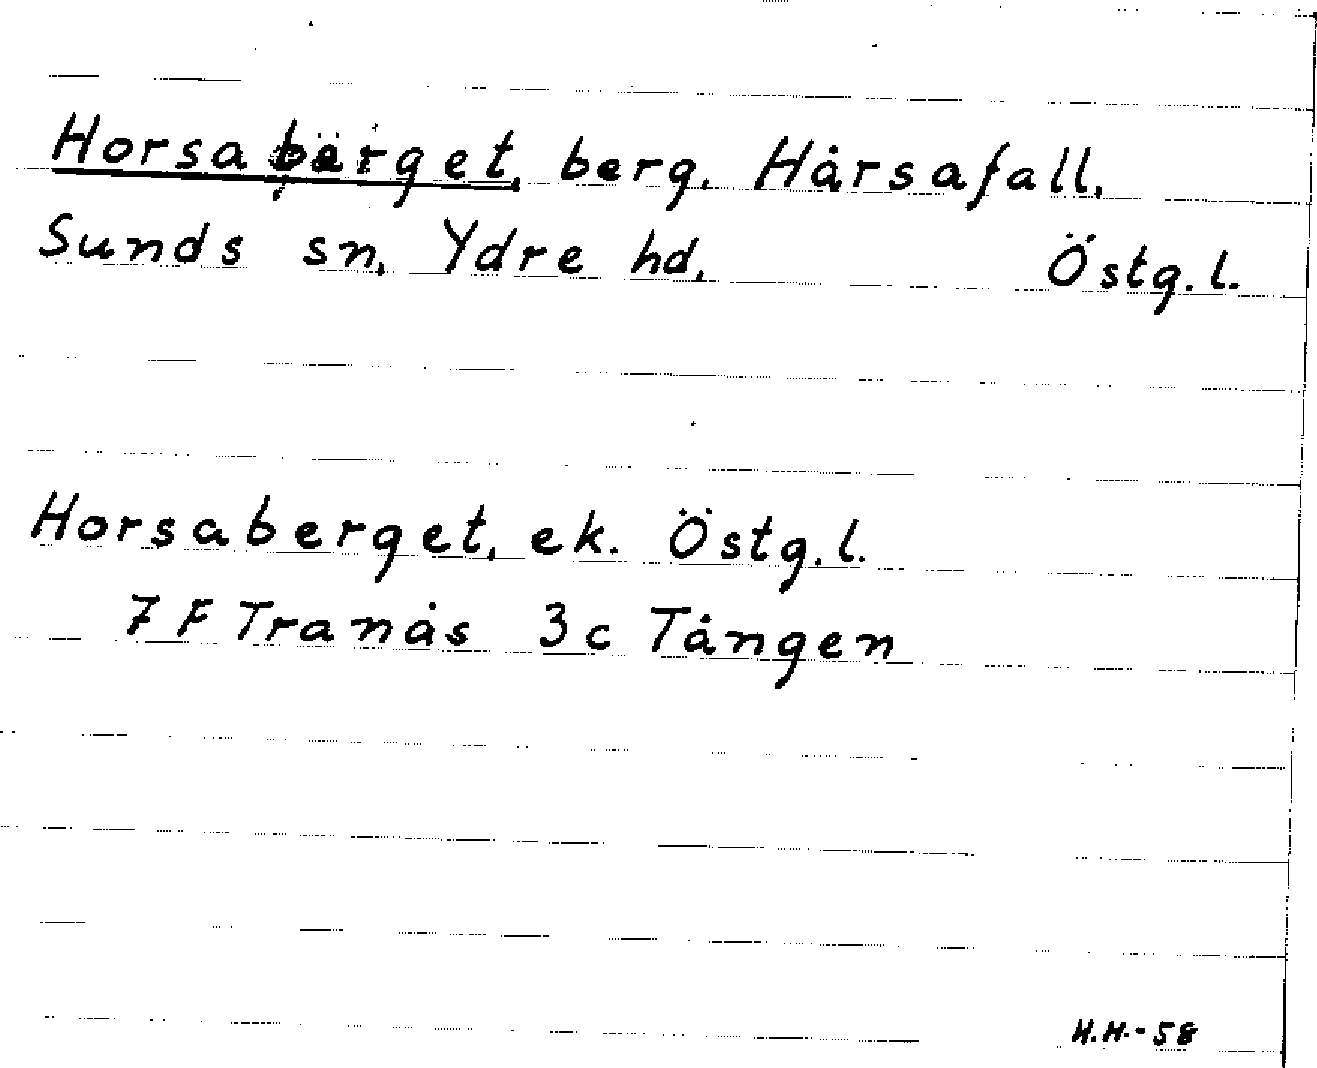 Horsabärget, berg. Hårsafall,
Sunds sn, Ydre hd, Östg.l.
Horsaberget, ek. Östg.l.
7 F Tranås 3c Tången
H.H.-58